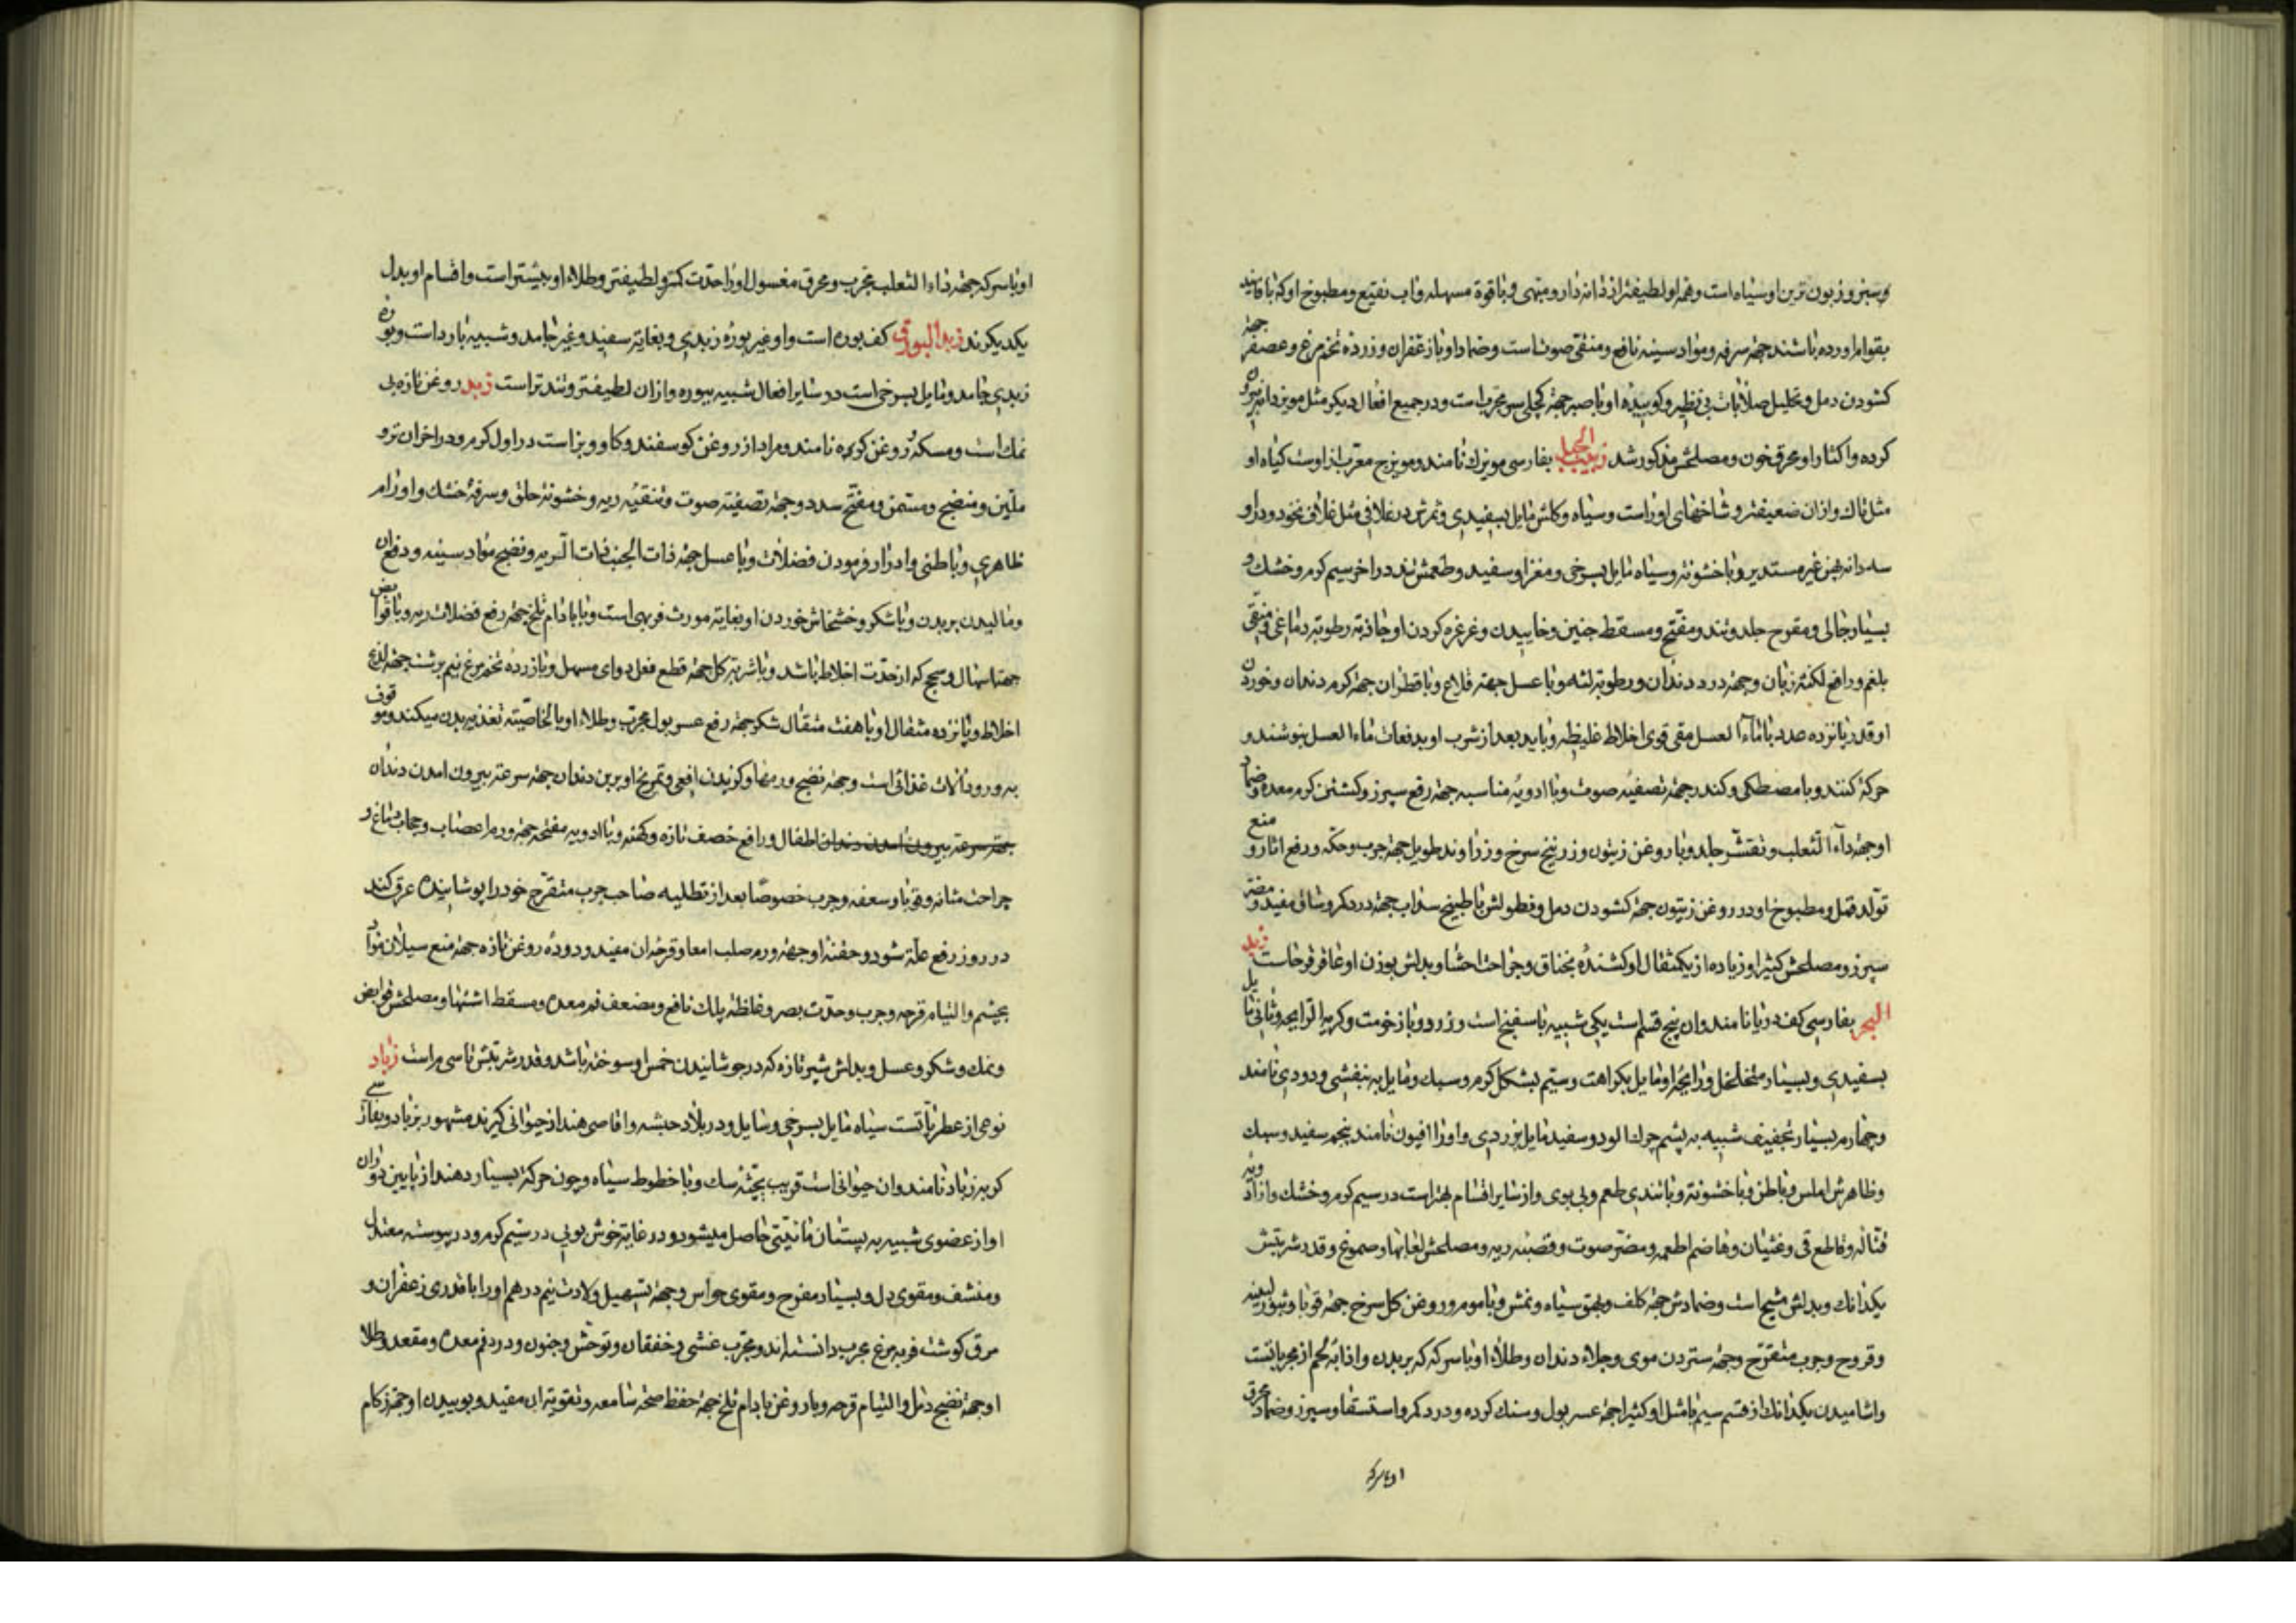 و سبز و زبون ترین او سیاه است و همه او لطیفتر از دانه دار و منتهی و با قوة مسهله و آب نقیع و مطبوخ او که با فانید
بقوام اورده باشند جهة سرفه و مواد سینه نافع و منقی صوتست و ضماد او با زعفران و زرده تخم مرغ و عصفر جهة
کشودن دمل و تحلیل صلابات بی نظیر و کوبیده او با صبر جهة کچلی سر مجرب است و در جمیع افعال دیکر مثل مویز دانه بیرون
کرده و اکثار او محرق خون و مصلحش مذکور شد زبیب الجبل بفارسی مویزک نامند و میویزج معرب از اوست کیاه او
مثل تاک و ازان ضعیفتر و شاخهای او راست و سیاه و کلش مایل بسفیدی و ثمرش در غلافی مثل غلاف نخود و دارای دو
سه دانه پهن غیر مستدیر و با خشونة و سیاه مایل بسرخی و مغز او سفید و طعمش تند در اخر سیم کرم و خشک و
بسیار جالی و مقرح جلد و تند و مفتح و مسقط جنین و خاییدن و غرغره کردن او جاذبه رطوبة دماغی و منقی
بلغم و رافع لکنة زبان و جهة درد دندان و رطوبة لثه و با عسل جهة قلاع و با قطران جهة کرم دندان و خوردن
او قدر پانزده عدد با ماء العسل مقی قوی اخلاط غلیظه و باید بعد از شرب او بدفعات ماء العسل بنوشند و
حرکة کنند و با مصطکی و کندر جهة تصفیه صوت و با ادویه مناسبه جهة رفع سپرز و کشتن کرم معده و ضماد
او جهة داء الثعلب و تقشر جلد و با روغن زیتون و زرنیخ سرخ و زراوند طویل جهة جرب و حکه و رفع اثار و منع
تولد قمل و مطبوخ او در روغن زیتون جهة کشودن دمل و نطولش با طبیخ سداب جهة درد کمر و ساق مفید و مضر
سپرز و مصلحش کثیرا و زیاده از یکمثقال او کشنده بخناق و جراحت احشا و بدلش بوزن او عاقرقرحاست زبد
البحر بفارسی کف دریا نامند و ان پنج قسم است یکی شبیه باسفنج است و زرد و با زخومت و کریه الرایحه و ثانی مایل
بسفیدی و بسیار متخلخل و رایحه او مایل بکراهت و سیّم بشکل کرم و سبک و مایل به بنفشی و دودی نامند
و چهارم بسیار خفیف شبیه به پشم چرک الود و سفید مایل بزردی و او را افیون نامند پنجم سفید و سبک
و ظاهرش املس و باطن و با خشونة و با تندی طعم و بی بوی و از سایر اقسام بهتر است در سیم کرم و خشک و از ادویه
قتاله و قاطع قی و غثیان و هاضم اطعمه و مضر صوت و قصبه ریه و مصلحش لعابها و صموغ و قدر شربتش
یکدانک و بدلش مشیح است و ضمادش جهة کلف و بهق سیاه و نمش و با موم و روغن کل سرخ جهة قوبا و بثور لبنیه
و قروح و جرب متقرح و جهة ستردن موی و جلاء دندان و طلاء او با سرکه که بر بدن و اذابة لحم از مجرباتست
و اشامیدن یکدانک از قسم سیم با مثل او کثیرا جهة عسر بول و سنک کرده و درد کمر و استسقا و سپرز و ضماد محرق
او با سرکه
او با سرکه جهة داء الثعلب مجرب و محرق مغسول او را حدت کمتر و لطیفتر و طلاء او بیشتر است و اقسام او بدل
یکدیکرند زبد البورق کف بوره است و او غیر بوره زبدی و بغایة سفید و غیر جامد و شبیه بارد است و بوره
زبدی جامد و مایل بسرخی است در سایر افعال شبیه ببوره و ازان لطیفتر و تند تر است زبد روغن تازه بی
نمک است و مسکه و روغن کوره نامند و مراد از روغن کوسفند و کاو و بز است در اول کرم و در اخر ان تر و
ملین و منضج و مسمن و مفتح سدد و جهة تصفیة صوت و تنقیه ریه و خشونة حلق و سرفه خشک و اورام
ظاهری و باطنی و ادرار فرمودن فضلات و با عسل جهة ذات الجنب و ذات الریه و نضج مواد سینه و دفع ان
و مالیدن بر بدن و با شکر و خشخاش خوردن او بغایة مورث فربهی است و با بادام تلخ جهة رفع فضلات ریه و با قوابض
جهة اسهال و سحج که از حدت اخلاط باشد و با شربة کل جهة قطع فعل دوای مسهل و با زرده تخم مرغ نیم برشت جهة لذع
اخلاط و پانزده مثقال او با هفت مثقال شکر جهة رفع عسر بول مجرب و طلاء او بالخاصیة تغذیه بدن میکند و موقوف
به ورود آلات غذائی است و جهة نضج ورمها و کزیدن افعی و تمریخ او بر بن دندان جهة سرعة بیرون امدن دندان
جهة سرعة بیرون امدن دندان اطفال و رافع خصف تازه و کهنه و با ادویه مفتحه جهة ورم اعصاب و حجاب دماغ و
جراحت مثانه و قوبا و سعفه و جرب خصوصا بعد از تطلیه صاحب جرب متقرح خود را پوشانیده عرق کند
در روز رفع علة شود و حقنه او جهة ورم صلب امعا و قرحه ان مفید و دوده روغن تازه جهة منع سیلان مواد
بچشم و التیام قرحه و جرب و حدت بصر و غلظة پلک نافع و مضعف فم معده و مسقط اشتها و مصلحش قوابض
و نمک و شکر و عسل و بدلش شیر تازه که در جوشانیدن خمس او سوخته باشد و قدر شربتش تا سی م است زباد
نوعی از عطریاتست سیاه مایل بسرخی و سایل و در بلاد حبشه و اقاصی هند از حیوانی کیرند مشهور بزباد و بفارسی
کربه زباد نامند و ان حیوانی است قریب بجثه سک و با خطوط سیاه و چون حرکة بسیار دهند از پایین دوران
او از عضوی شبیه به پستان مائیتی حاصل میشود و در غایة خوش بویی در سیّم کرم و در یبوسته معتدل
و منشف و مقوی دل و بسیار مفرح و مقوی حواس و جهة تسهیل ولادت نیم درهم او را با قدری زعفران و
مرق کوشت فربه مرغ مجرب دانسته اند و مجرب غشی و خفقان و توحش و جنون و درد فم معده و مقعد و طلا
او جهة نضج دمل و التیام قرحه و با روغن بادام تلخ جهة حفظ صحة سامعه و تقویة ان مفید و بوییدن او جهة زکام